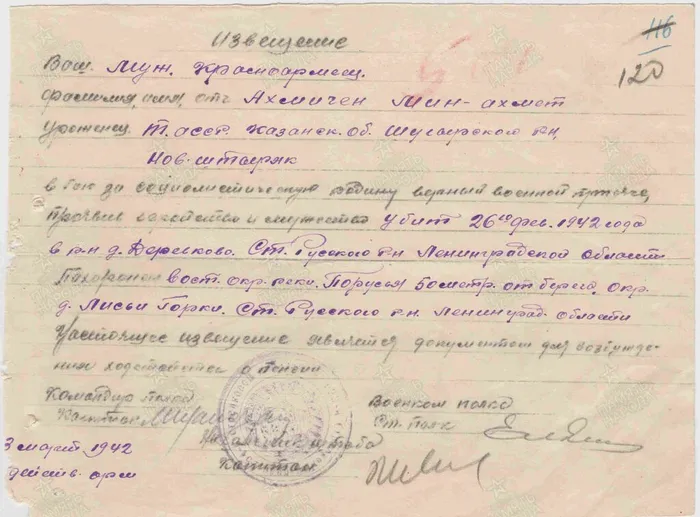 116
120
Извещение
Ваш муж. Красноармеец.
фамилия, имя, отч Ахмичен Мин-ахмет
уроженец Т. асср. Казанск. об. Шугурского р-н,
Нов-штаряк
в бою за социалистическую родину верный военной присяге,
проявив геройство и мужество убит 26го фев. 1942 года
в р-н д. Деревково. Ст. Русского р-н Ленинградской области
Похоронен вост. окр. реки. Порусья 50 метр. от берега, окр.
д. Лисьи Горки. Ст. Русского р-н. Ленинград. области
Настоящее извещение является документом для возбужде-
ния ходатайства о пенсии
Командир полка
Капитан
Военком полка
Ст. полк
Начальник штаба
Капитан
3 март 1942
действ. арм